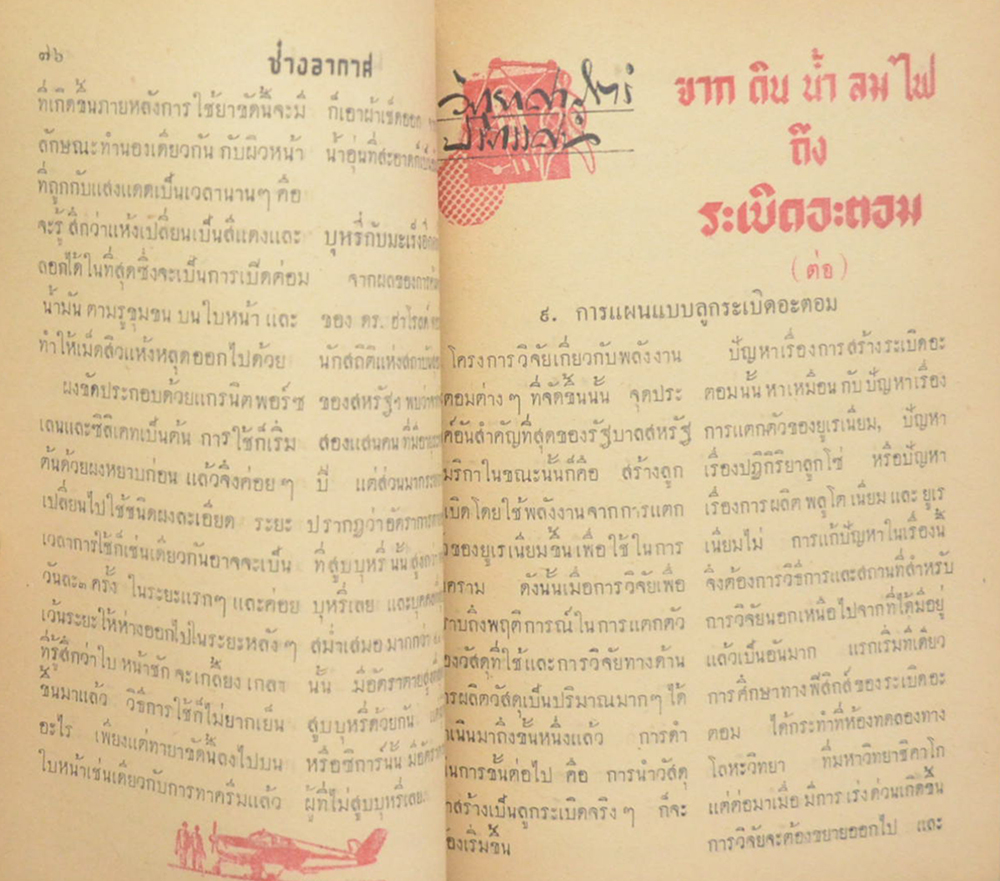 ๗๖
ช่างอากาศ
ที่เกิดขึ้นภายหลังการใช้ยาขัดนี้จะมี
ลักษณะทำนองเดียวกันกับผิวหน้า
ที่ถูกกับแสงแดดเป็นเวลานานๆ คือ
จะรู้สึกว่าแห้งเปลี่ยนเป็นสีแดงและ
ลอกได้ในที่สุดซึ่งจะเป็นการเปิดค่อม
น้ำมันตามรูขุมขนบนใบหน้าและ
ทำให้เม็ดสิวแห้งหลุดออกไปด้วย
ผงขัดประกอบด้วยแกรนิตพอร์ซ
เลนและซิลิเดทเป็นต้น การใช้ก็เริ่ม
ต้นด้วยผงหยาบก่อน แล้วจึงค่อยๆ
เปลี่ยนไปใช้ชนิดผงละเอียด ระยะ
เวลาการใช้ก็เช่นเดียวกันอาจจะเป็น
วันละ๓ ครั้ง ในระยะแรกๆ และค่อย
เว้นระยะให้ห่างออกไปในระยะหลังๆ
ที่รู้สึกว่าใบหน้าชักจะเกลี้ยงเกลา
ขึ้นมาแล้ว วิธีการใช้ก็ไม่ยากเย็น
อะไร เพียงแต่ทายาขัดนี้ลงไปบน
ใบหน้าเช่นเดียวกับการทาครีมแล้ว
ก็เอาผ้าเช็ดออก
น้ำอุ่นที่สะอาด
บุหรี่กับมะเร็ง
จากผลของการ
ของ ดร. ฮาโรลด์
นักสถิติแห่งสถาบัน
ของสหรัฐฯ พบว่า
สองแสนคนที่มีอายุ
ปี แต่ส่วนมาก
ปรากฏว่าอัตราการ
ที่สูบบุหรี่นั้นสูงกว่า
บุหรี่เลย และบุคคล
สม่ำเสมอมากกว่า
นั้น มีอัตราตายสูง
สูบบุหรี่ด้วยกัน
หรือซิการ์นั้นมีอัตรา
ผู้ที่ไม่สูบบุหรี่เลย
วิทยาศาสตร์
จาก ดิน น้ำ ลม ไฟ
ถึง
ระเบิดอะตอม
(ต่อ)
๙. การแผนแบบลูกระเบิดอะตอม
โครงการวิจัยเกี่ยวกับพลังงาน
ตอมต่างๆ ที่จัดขึ้นนั้น จุดประ
ค์อันสำคัญที่สุดของรัฐบาลสหรัฐ
มริกาในขณะนั้นก็คือ สร้างลูก
เบิดโดยใช้พลังงานจากการแตก
ของยูเรเนี่ยมขึ้นเพื่อใช้ในการ
คราม ดังนั้นเมื่อการวิจัยเพื่อ
ราบถึงพฤติการณ์ในการแตกตัว
องวัสดุที่ใช้และการวิจัยทางด้าน
ารผลิตวัสดุเป็นปริมาณมากๆ ได้
เนินมาถึงขั้นหนึ่งแล้ว การดำ
นการขั้นต่อไป คือ การนำวัสดุ
าสร้างเป็นลูกระเบิดจริงๆ ก็จะ
องเริ่มขึ้น
ปัญหาเรื่องการสร้างระเบิดอะ
ตอมนั้นหาเหมือนกับปัญหาเรื่อง
การแตกตัวของยูเรเนี่ยม, ปัญหา
เรื่องปฏิกิริยาลูกโซ่ หรือปัญหา
เรื่องการผลิตพลูโตเนี่ยมและยูเร
เนี่ยมไม่ การแก้ปัญหาในเรื่องนี้
จึงต้องการวิธีการและสถานที่สำหรับ
การวิจัยนอกเหนือไปจากที่ได้มีอยู่
แล้วเป็นอันมาก แรกเริ่มทีเดียว
การศึกษาทางฟิสิกส์ของระเบิดอะ
ตอม ได้กระทำที่ห้องทดลองทาง
โลหะวิทยา ที่มหาวิทยาชิคาโก
แต่ต่อมาเมื่อมีการเร่งด่วนเกิดขึ้น
การวิจัยจะต้องขยายออกไป และ